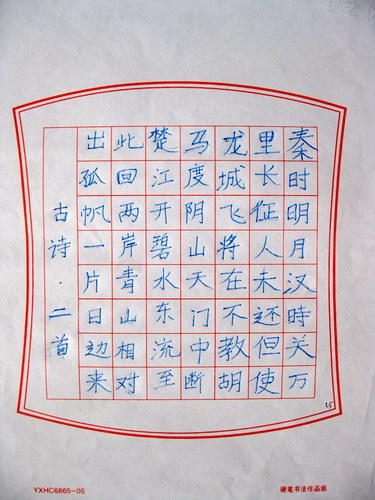 秦时明月汉時关万
里长征人未还但使
龙城飞将在不教胡
马度阴山天门中断
楚江开碧水东流至
此回两岸青山相对
出孤帆一片日边来
古诗·二首
YXHC6865-05
硬笔书法作品纸